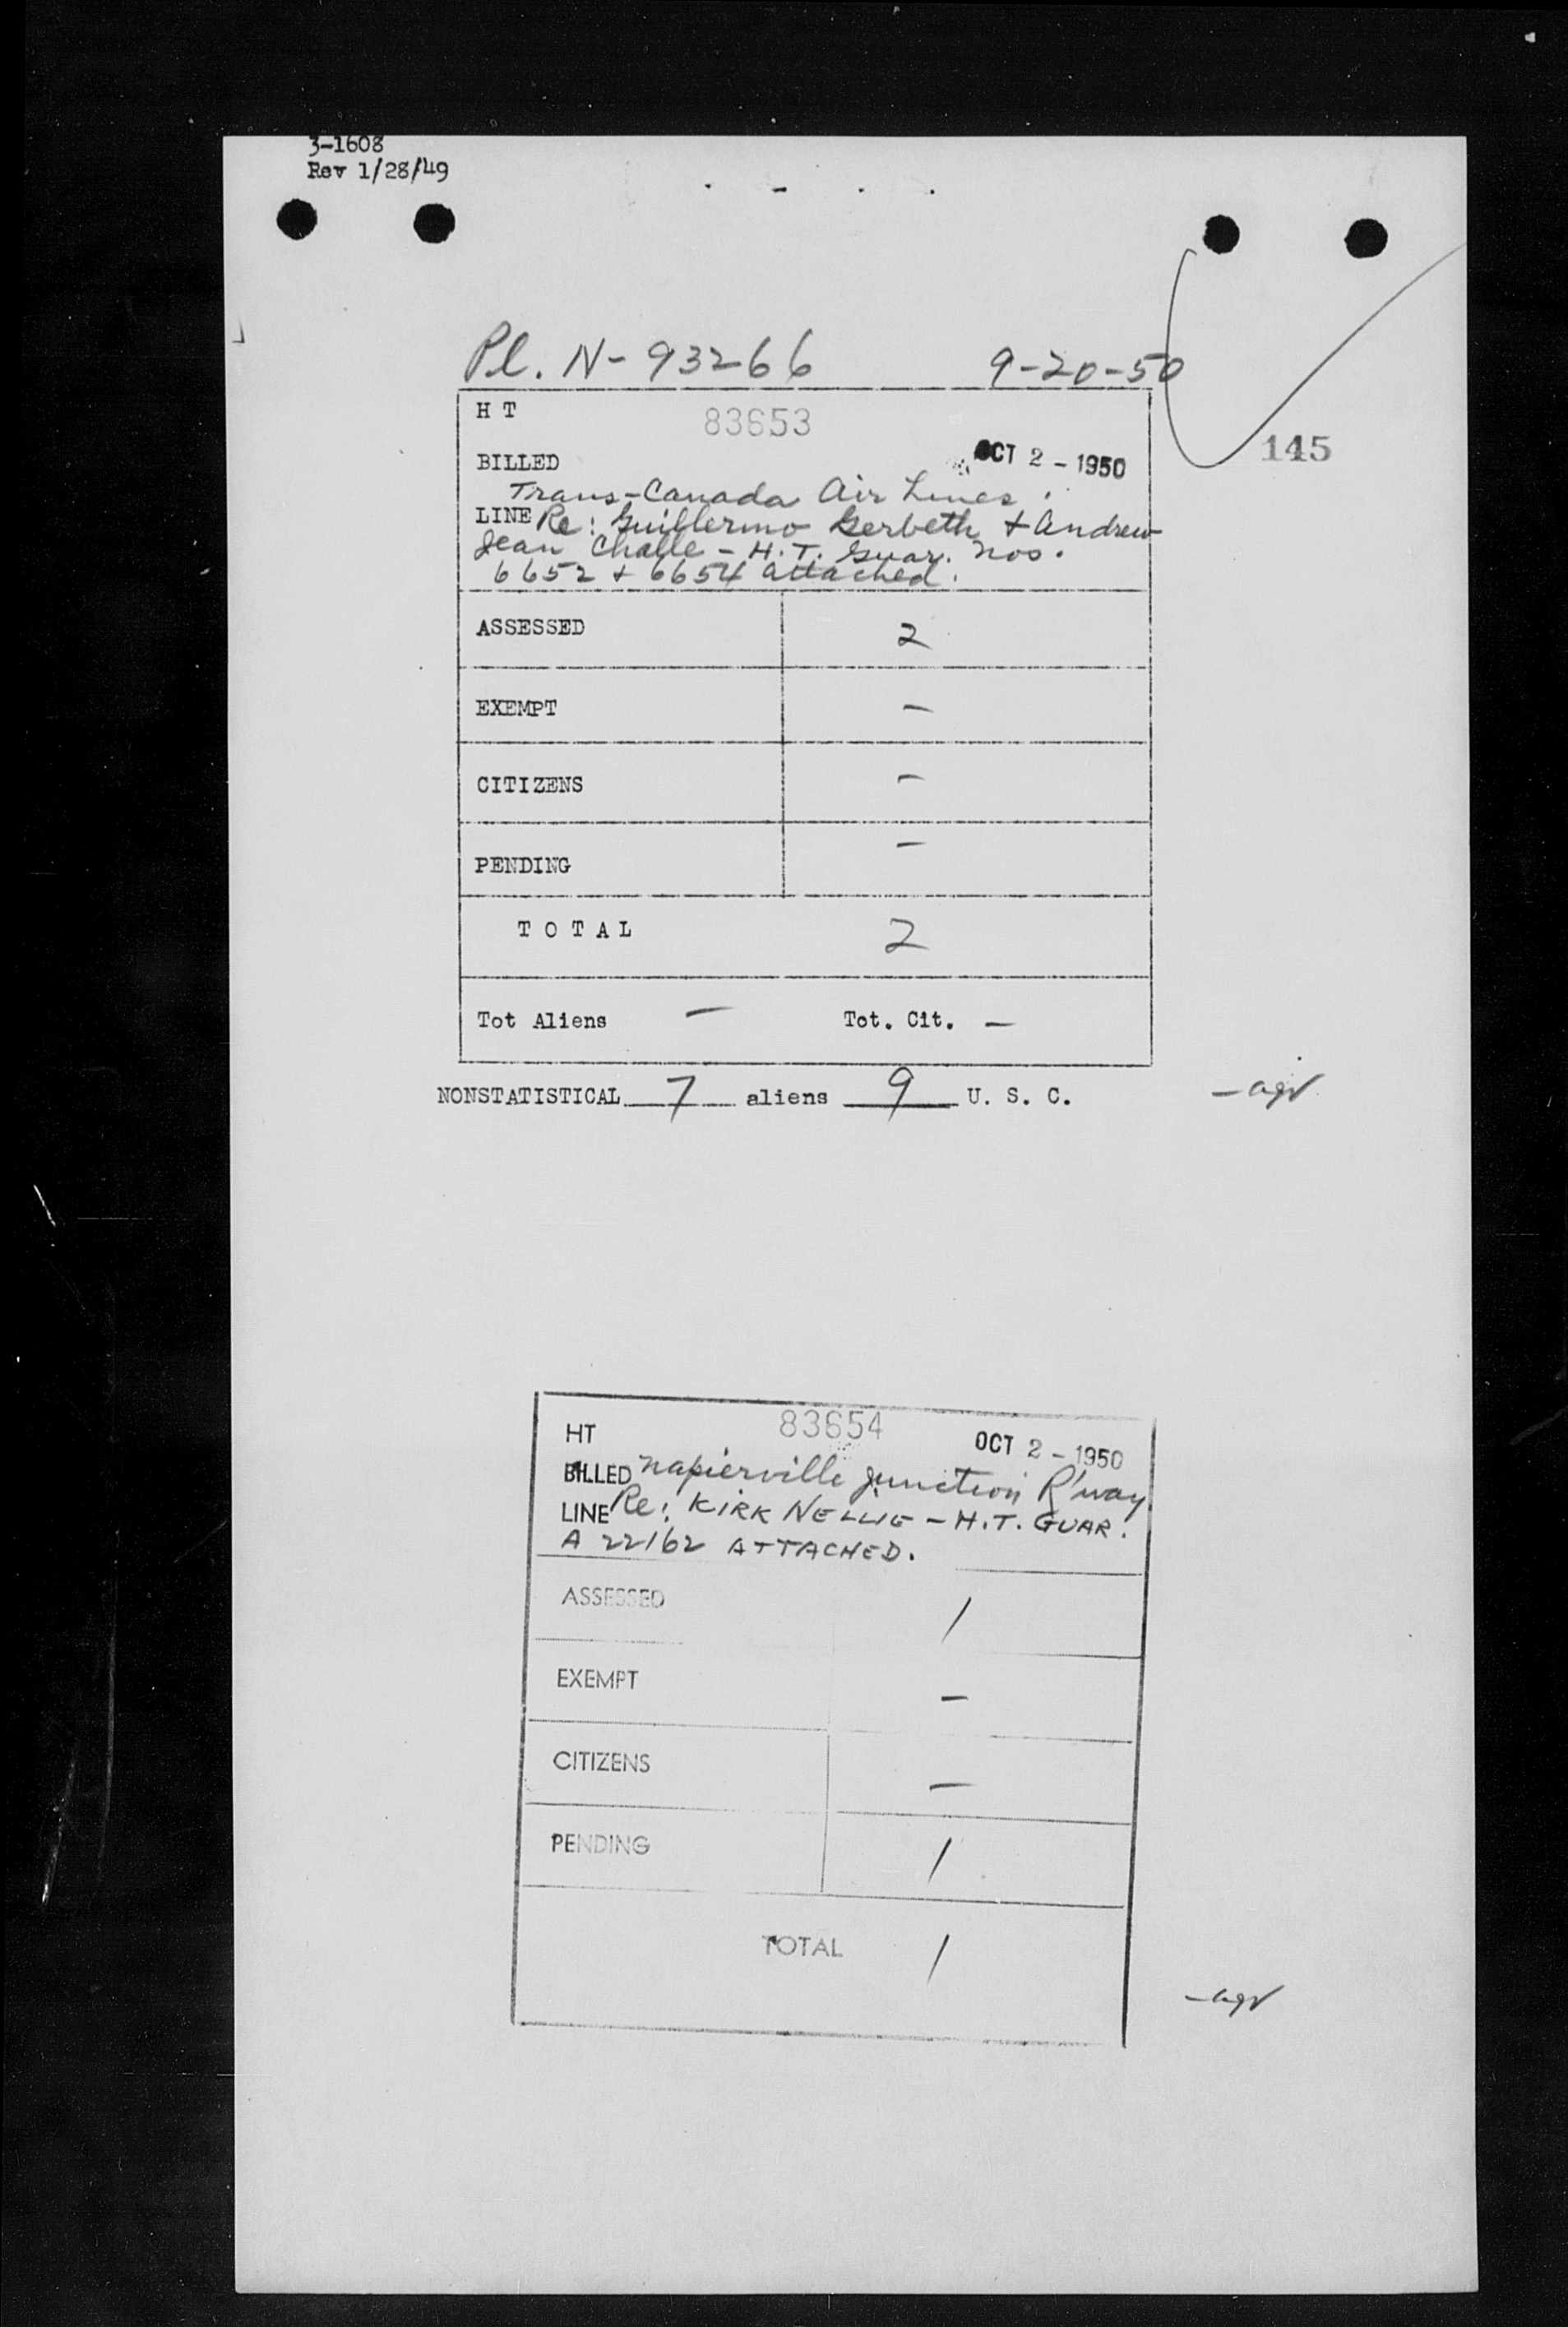 3-1608
Rev 1/28/49
Pl. N- 93266 9-20-50
H T 83653
BILLED OCT 2 - 1950
145
Trans-Canada Air Lines.
LINE Re: Guillermo Gerbeth + Andrew
Jean Challe - H.T. Guar. Nos.
6652 + 6654 attached.
ASSESSED 2
EXEMPT -
CITIZENS -
PENDING -
T O T A L 2
Tot Aliens - Tot. Cit. -
NONSTATISTICAL 7 aliens 9 U. S. C.
HT 83654 OCT 2 - 1950
BILLED Napierville Junction R'way
LINE Re: KIRK NELLIE - H.T. GUAR.
A 22162 ATTACHED.
ASSESSED 1
EXEMPT -
CITIZENS -
PENDING 1
TOTAL 1